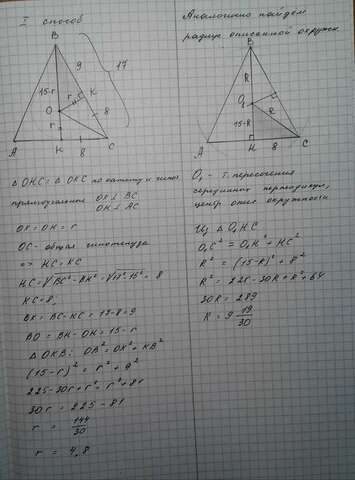 I способ
B
9
17
15-r
K
r
O
8
r
A
H
8
C
△OHC = △OKC по катету и гипот.
прямоугольные OK ⊥ BC
OH ⊥ AC
OK = OH = r
OC - общая гипотенуза
=> HC = KC
HC = √BC² - BH² = √17² - 15² = 8
KC = 8,
BK = BC - KC = 17 - 8 = 9
BO = BH - OH = 15 - r
△OKB: OB² = OK² + KB²
(15 - r)² = r² + 9²
225 - 30r + r² = r² + 81
30r = 225 - 81
r = 144/30
r = 4,8
Аналогично найдем
радиус описанной окружн.
B
R
O₁
R
15-R
A
H
8
C
O₁ - т. пересечения
серединных перпендикул,
центр опис окружности
Из △O₁HC
O₁C² = O₁H² + HC²
R² = (15 - R)² + 8²
R² = 225 - 30R + R² + 64
30R = 289
R = 9 19/30